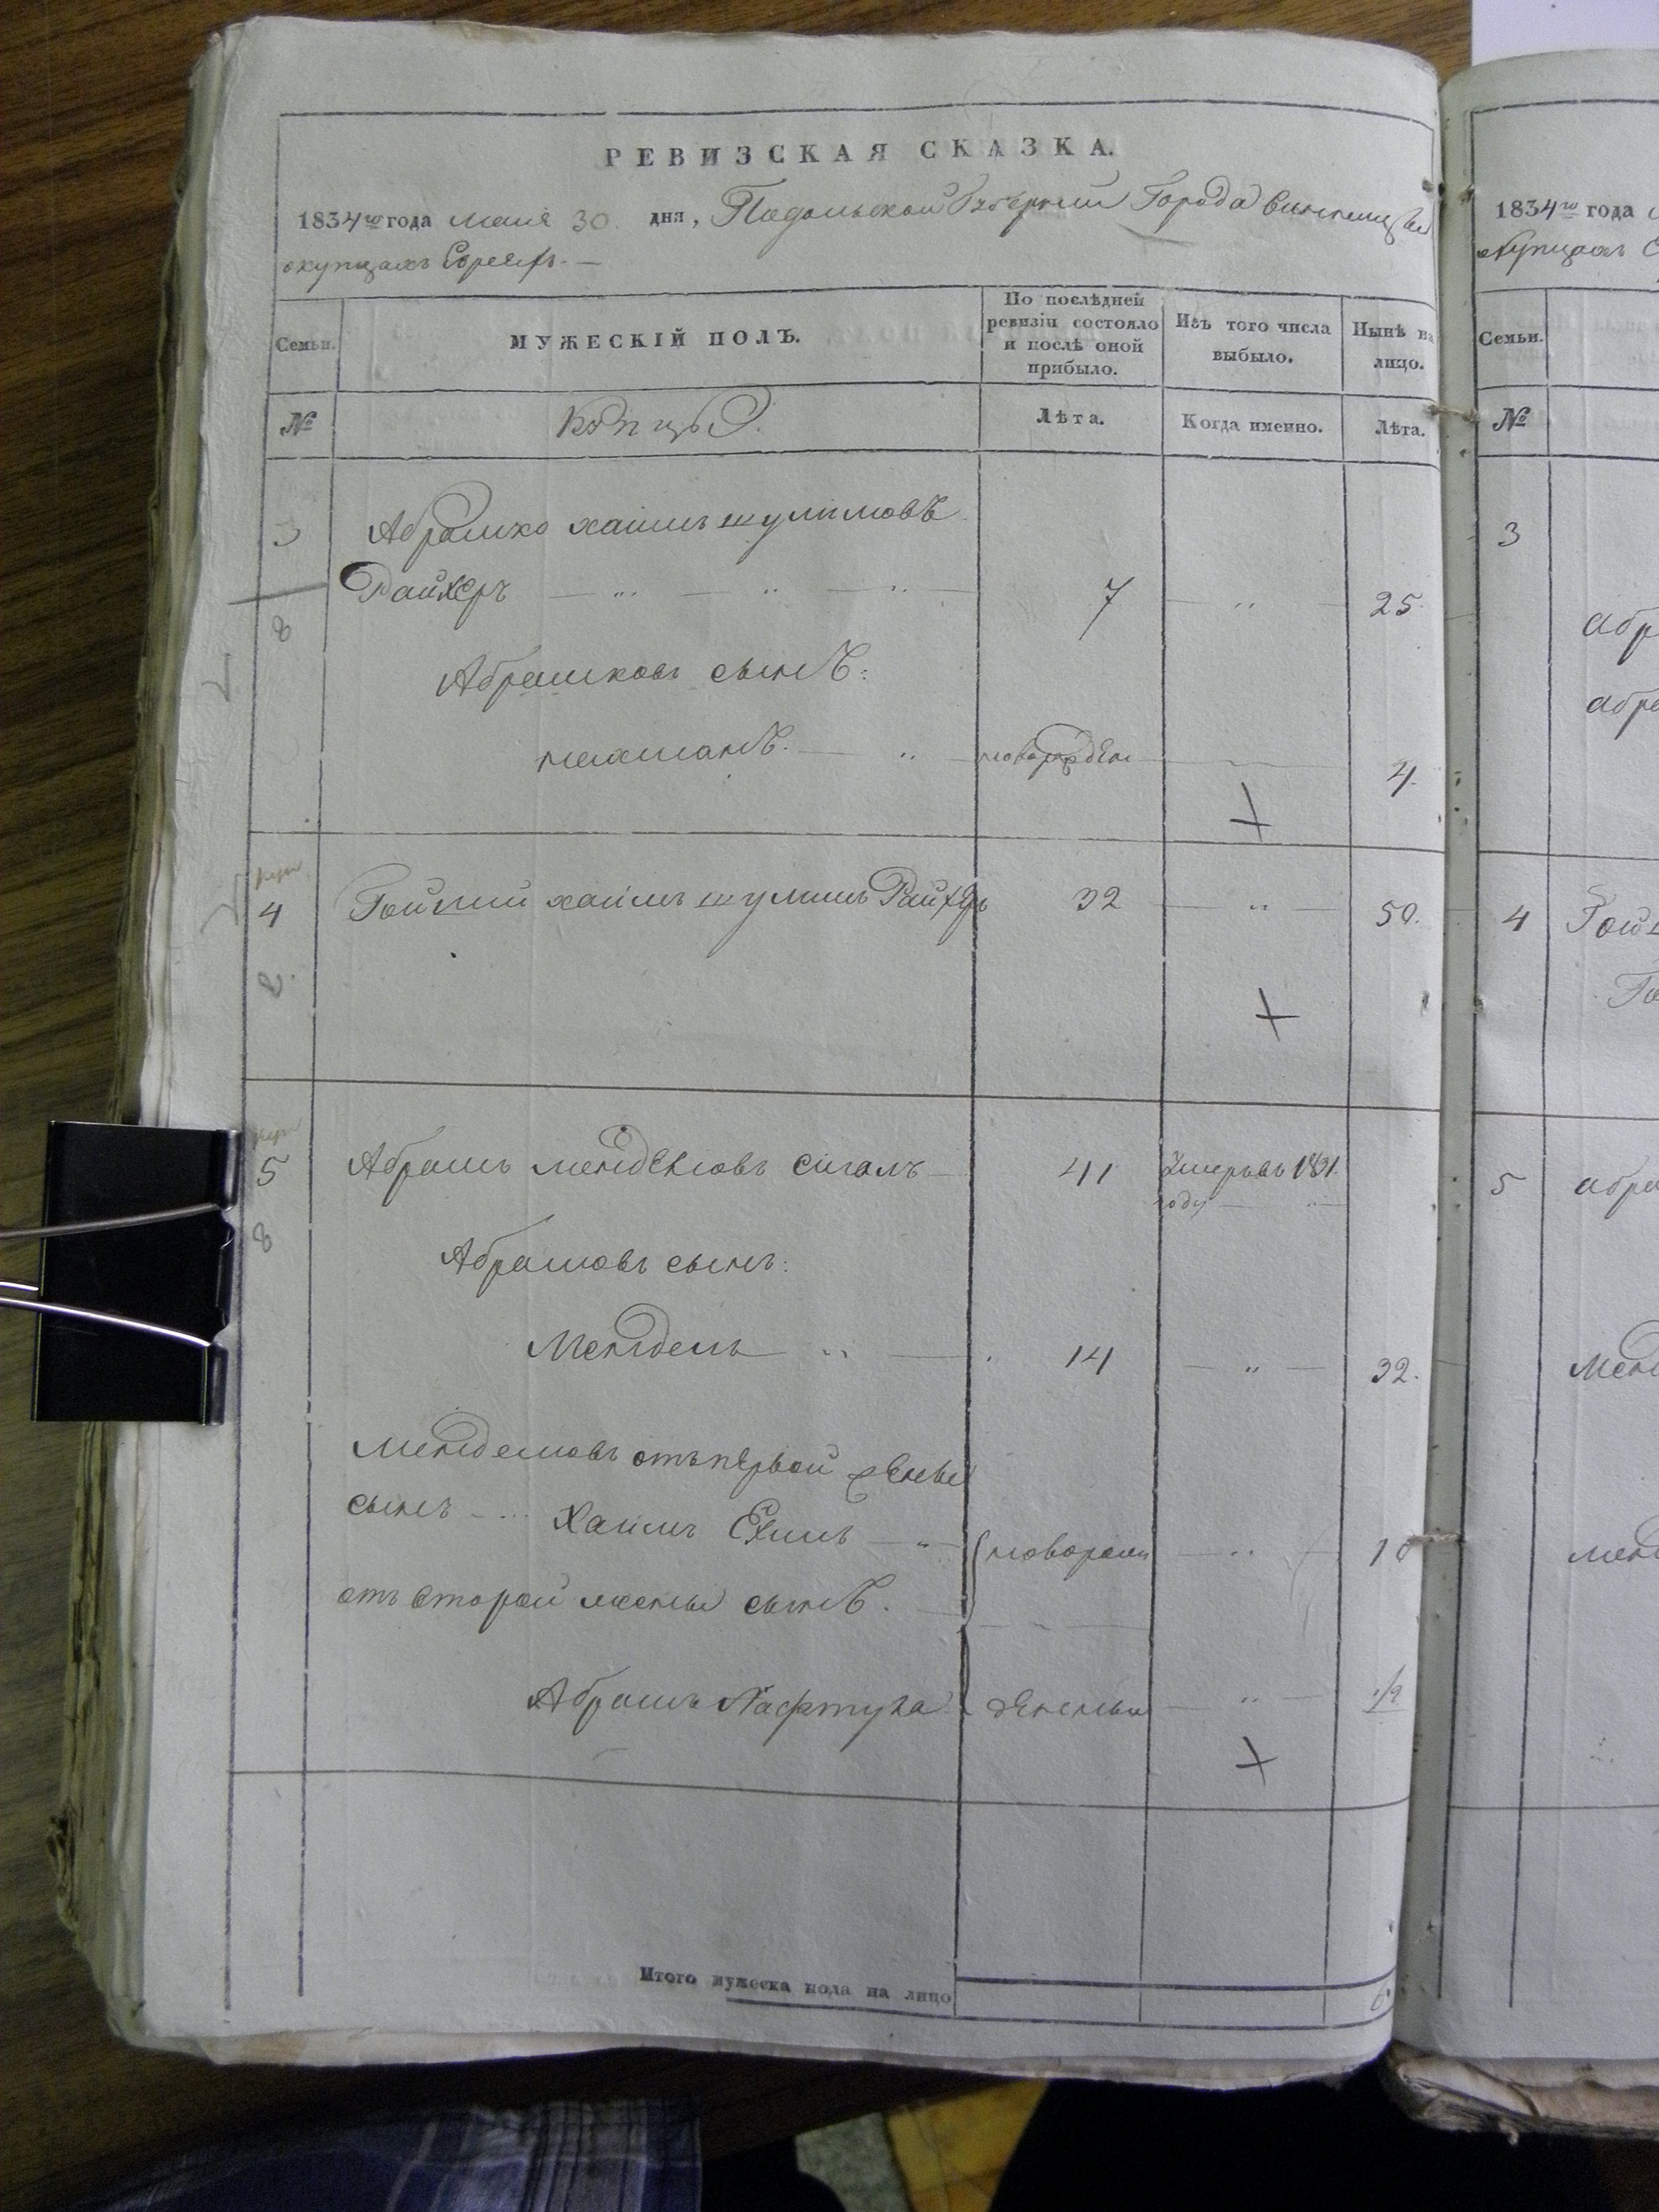 РЕВИЗСКАЯ СКАЗКА.
1834го года мая 30 дня, Подольской Губернии Города Винницы
о купцахъ Евреяхъ.
Семьи.
МУЖЕСКІЙ ПОЛЪ.
По послѣдней ревизіи состояло и послѣ оной прибыло.
Изъ того числа выбыло.
Нынѣ на лицо.
№
Купцы.
Лѣта.
Когда именно.
Лѣта.
3 Абрамко хаимъ шулимовъ
Райхеръ 7 25
8
Абрамковъ сынъ:
нахманъ. новорожден 4.
4 хаимъ шулимъ Райхеръ 32 50.
8.
5 Абрамъ менделювъ сигалъ 41 Умеръ въ 1831.
году
8
Абрамовъ сынъ:
Мендель 14 32.
Менделювъ отъ первой жены
сынъ Хаимъ новорож 10
отъ второй жены сынъ.
Абрамъ Нафтула денные 1/2
Итого мужеска пола на лицо 6.
1834го года
о купцахъ
Семьи.
№
3
абр
абра
4
5 абра
Менд
менд